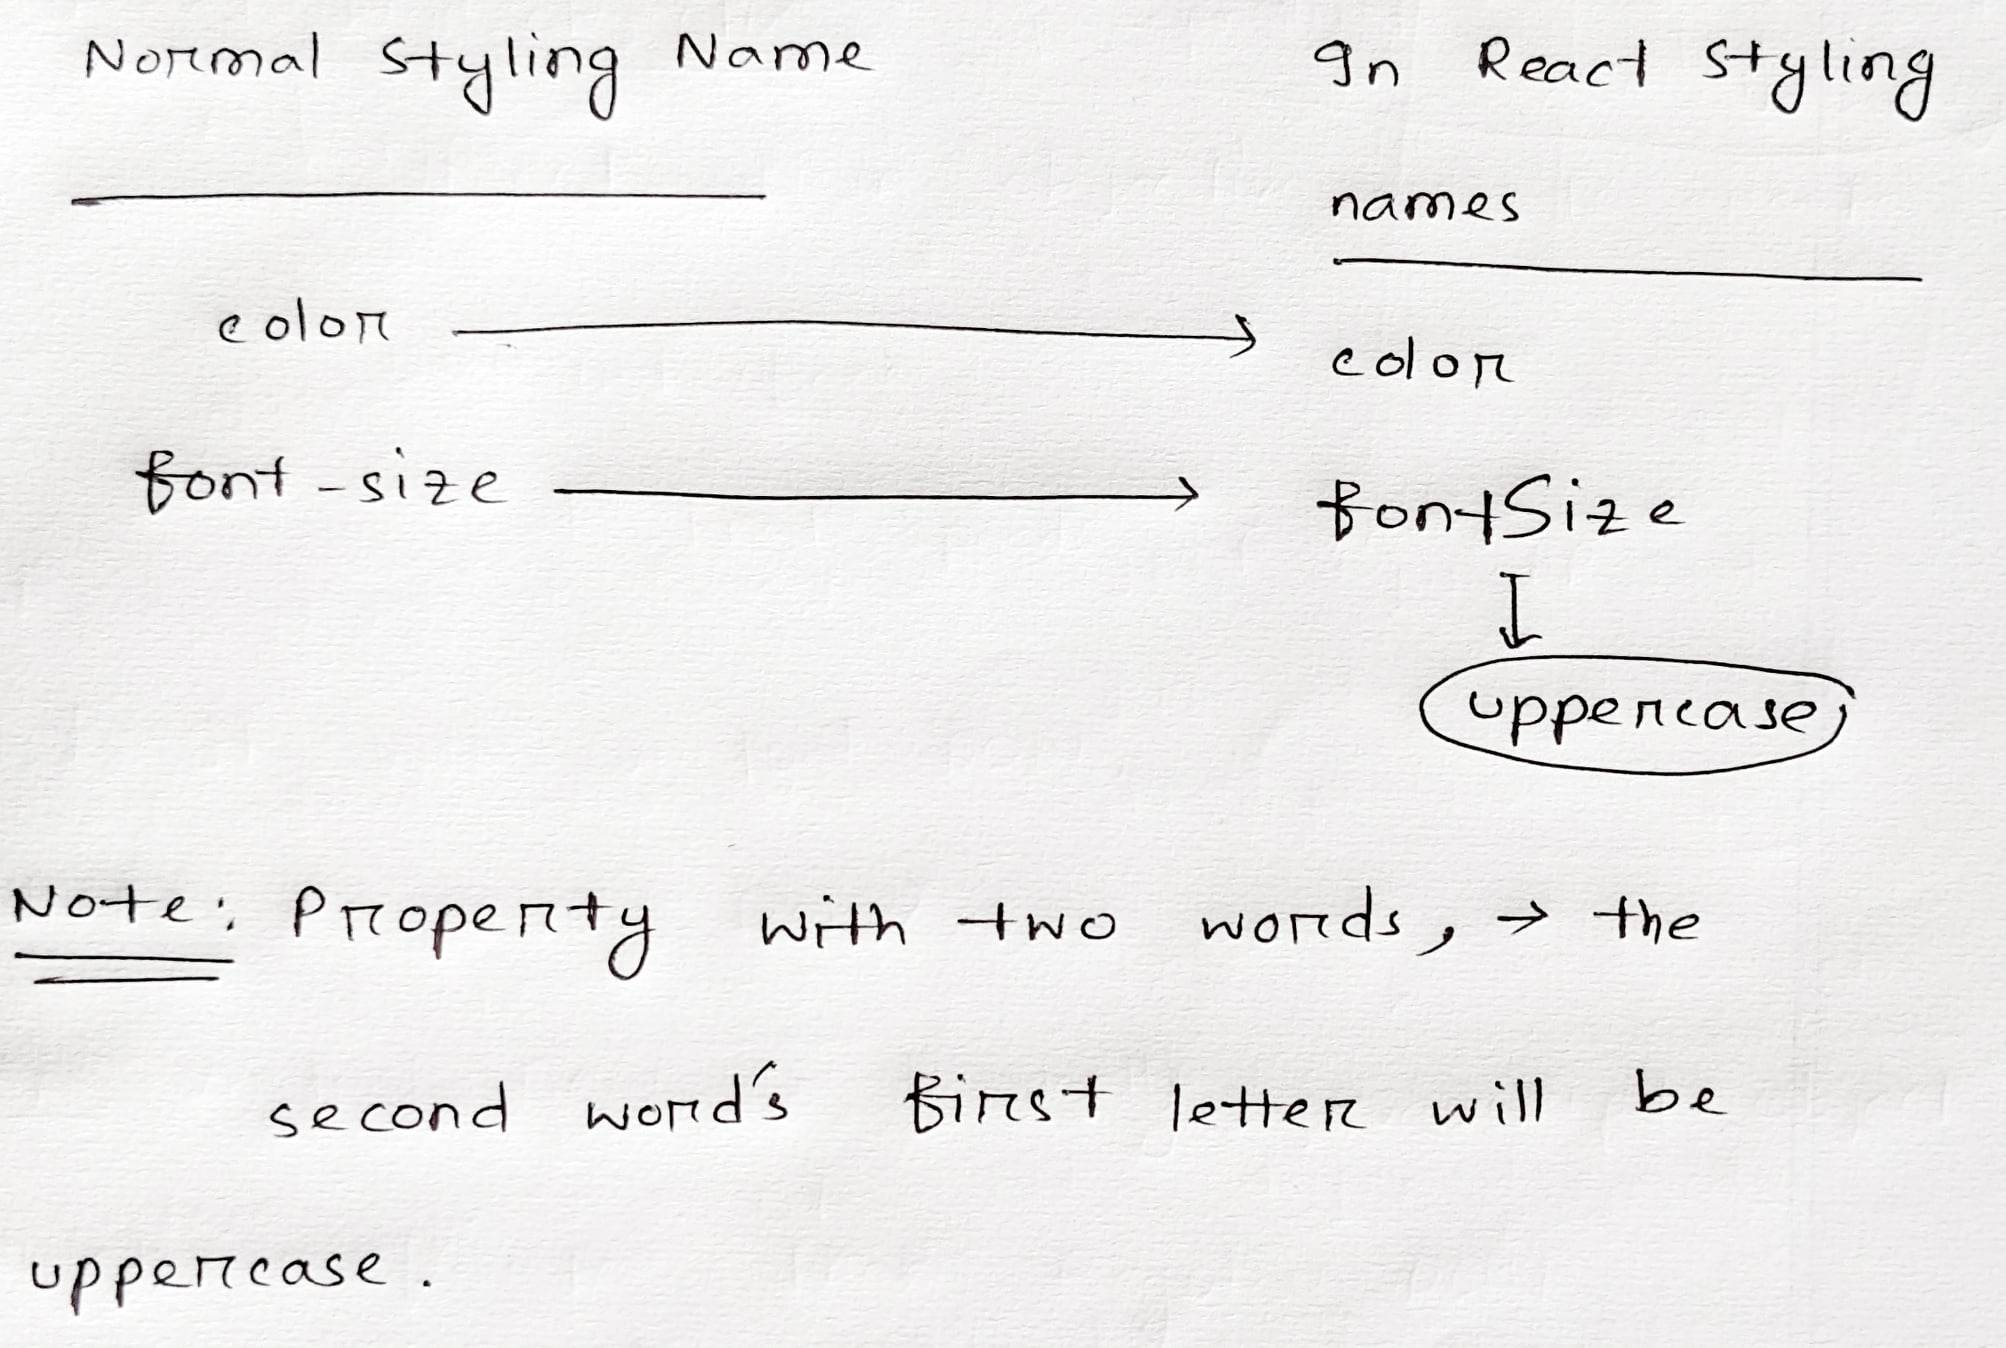 Normal Styling Name
In React Styling
names
color → color
font-size → fontSize
↓
uppercase
Note: Property with two words, → the
second word's first letter will be
uppercase.